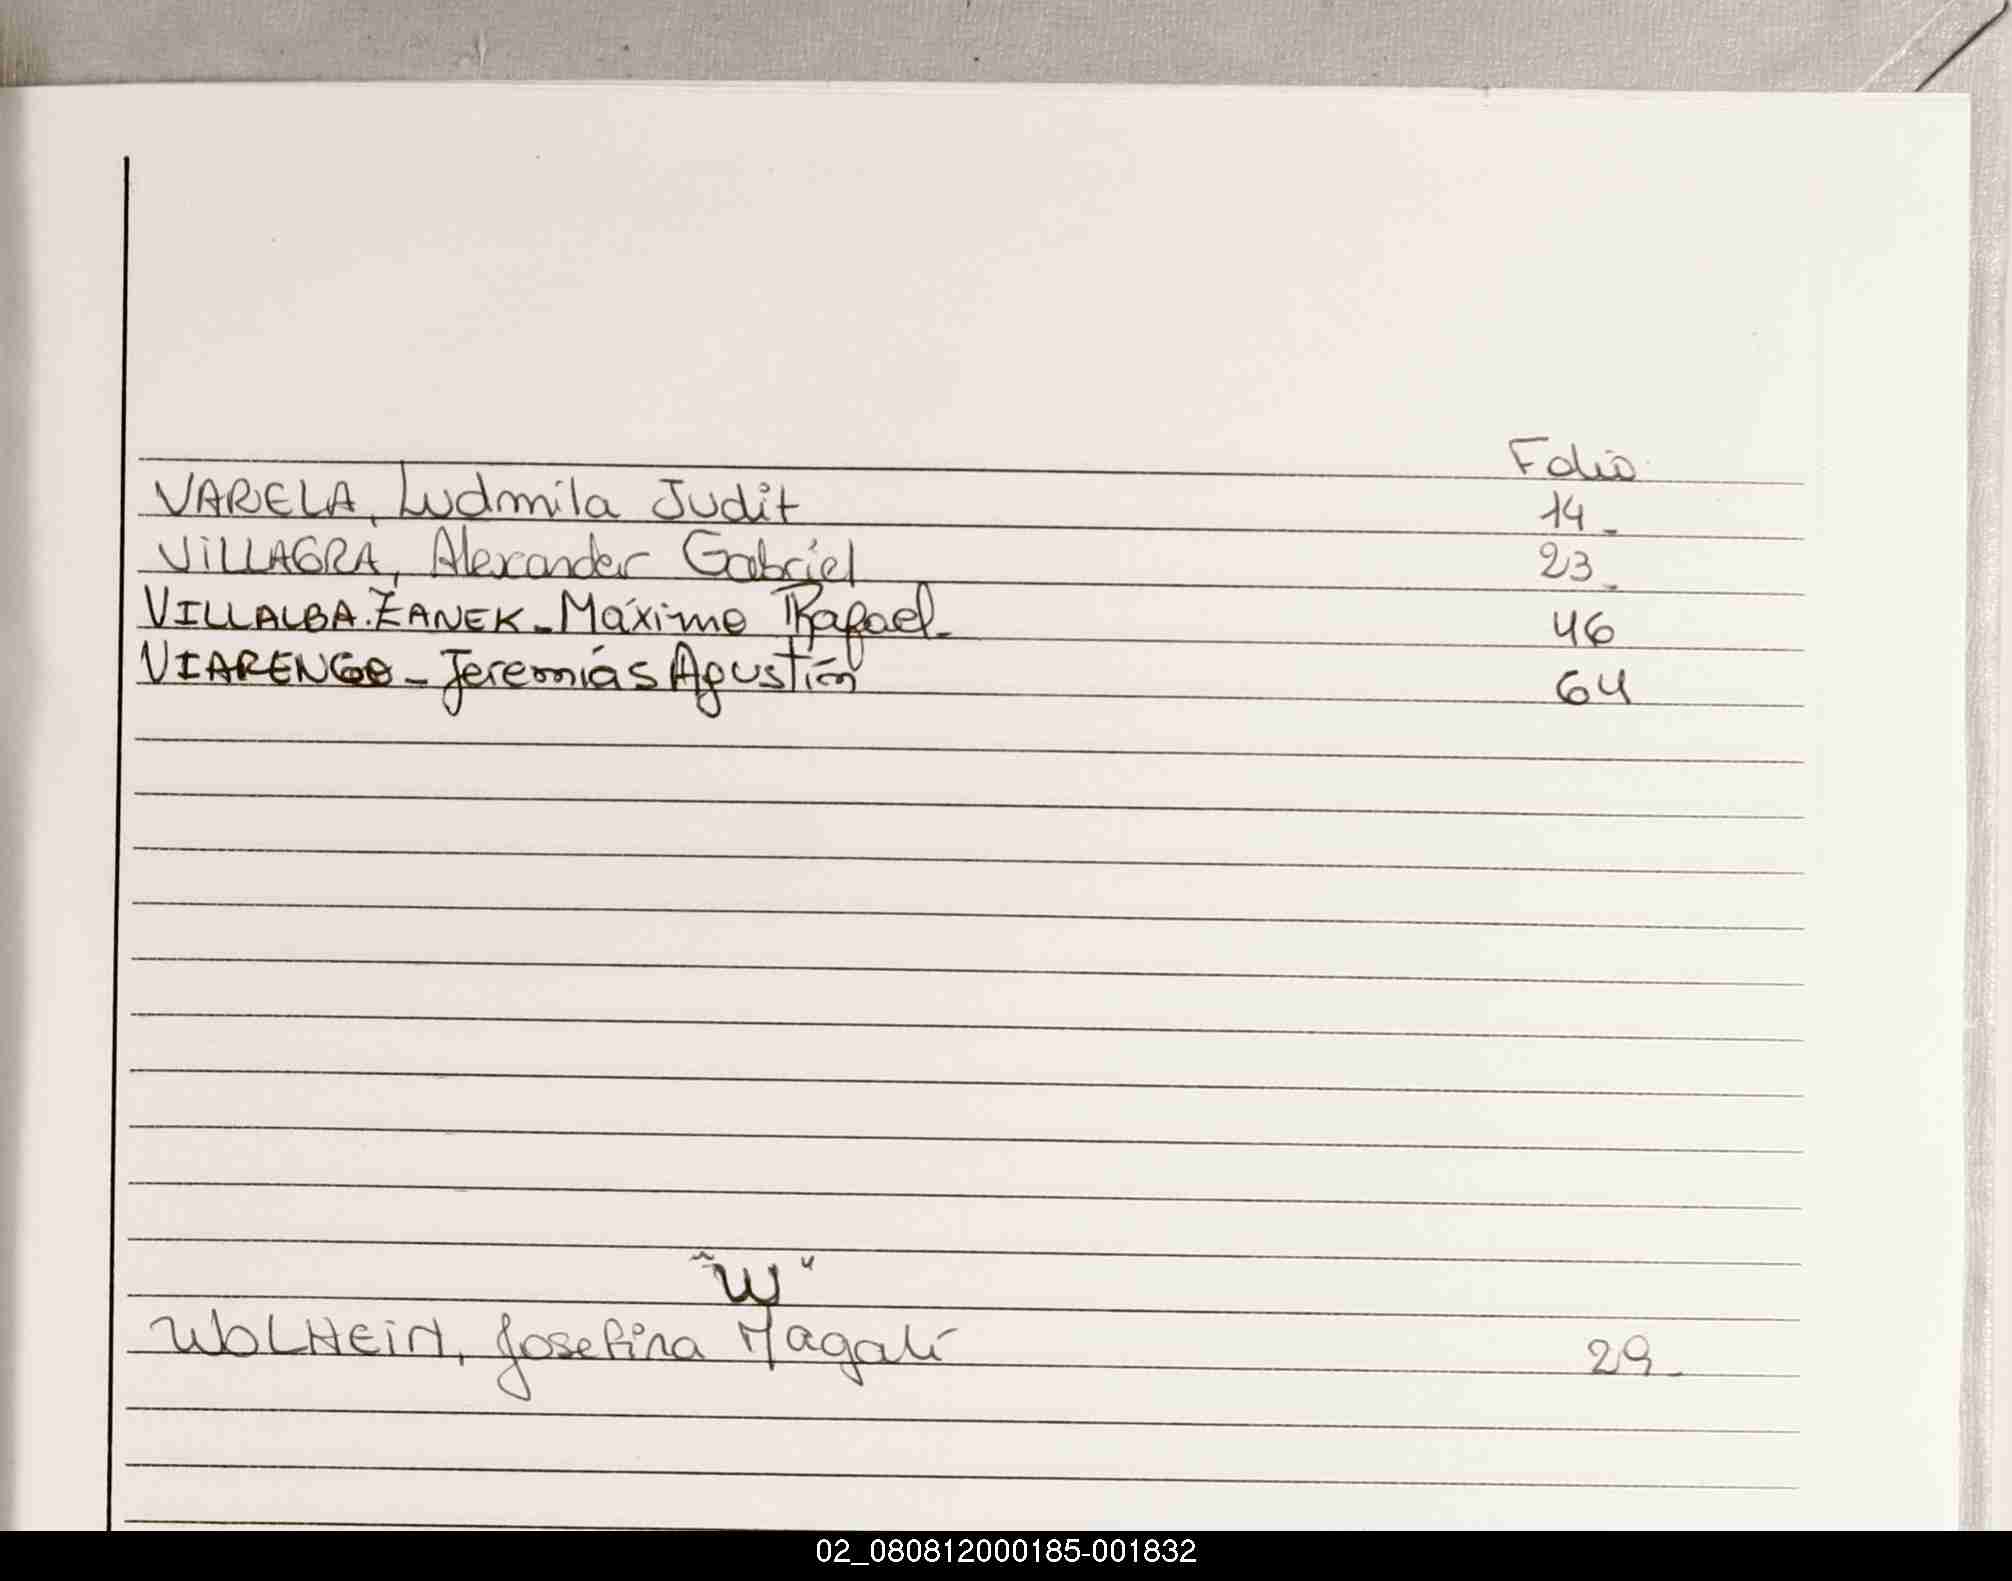 Folio
VARELA, Ludmila Judit 14-
VILLAGRA, Alexander Gabriel 23-
VILLALBA.ZANEK-Máximo Rafael- 46
VIARENGO-Jeremías Agustín 64
"W"
WOLHEIN, Josefina Magalí 29-
02_080812000185-001832